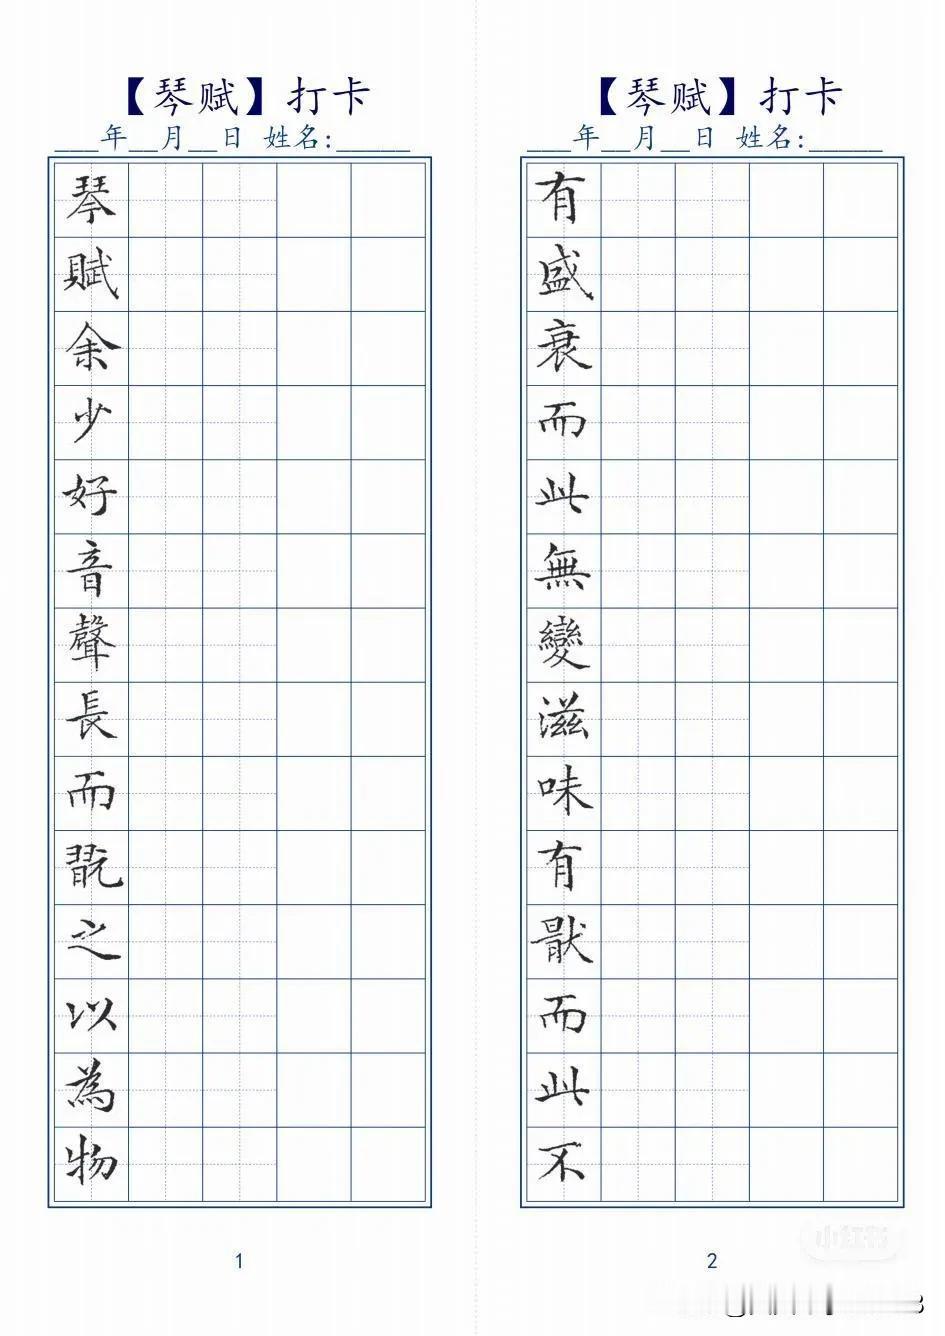 【琴赋】打卡
___年__月__日 姓名:_____
琴
賦
余
少
好
音
聲
長
而
翫
之
以
為
物
1
【琴赋】打卡
___年__月__日 姓名:_____
有
盛
衰
而
此
無
變
滋
味
有
猒
而
此
不
2
小红书